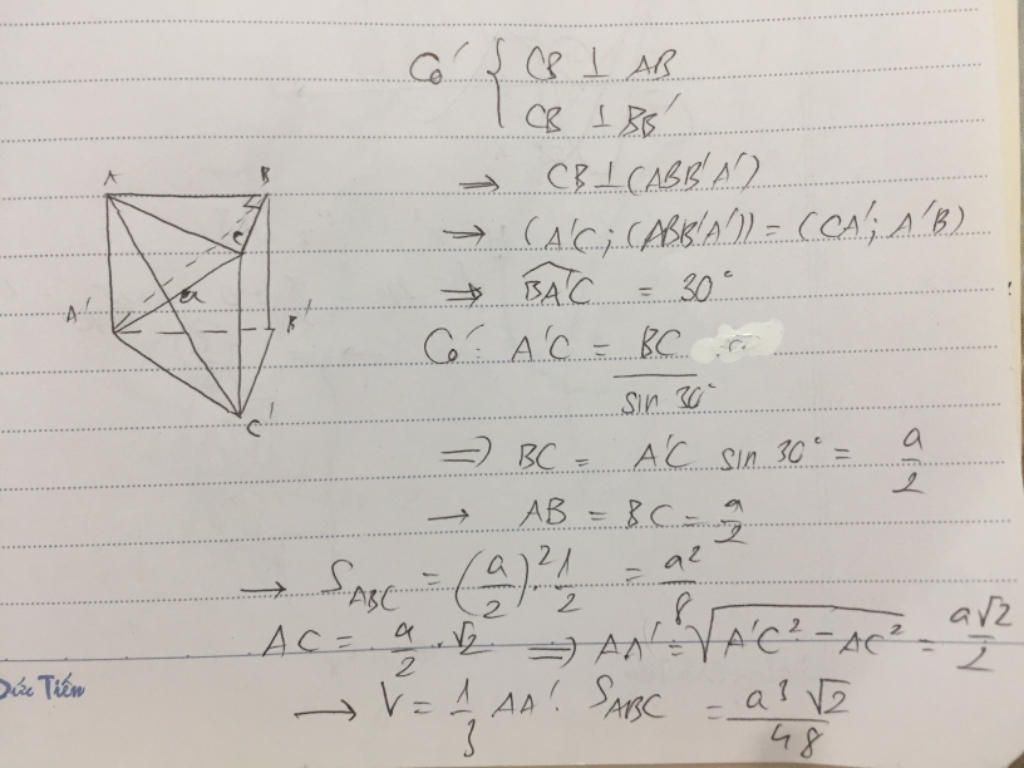 Có { CB ⊥ AB
CB ⊥ BB'
→ CB ⊥ (ABB'A')
→ (A'C; (ABB'A')) = (CA'; A'B)
⇒ \widehat{BA'C} = 30°
Có: A'C = BC / sin 30°
⇒ BC = A'C sin 30° = a/2
→ AB = BC = a/2
→ S_{ABC} = (a/2)^2 . 1/2 = a^2/8
AC = a/2 . √2 ⇒ AA' = √(A'C^2 - AC^2) = a√2/2
→ V = 1/3 AA'. S_{ABC} = a^3√2/48
A B
C
a
A' B'
C'
Đức Tiến